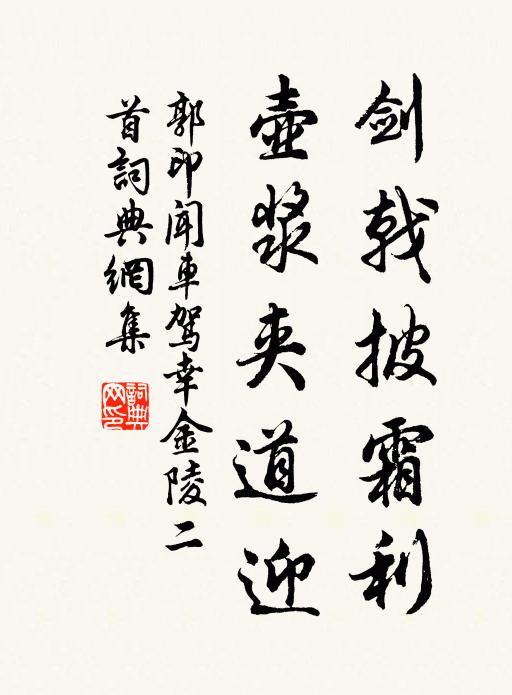 剑戟披霜利
壶浆夹道迎
郭印闻車驾幸金陵二
首詞典網集
詞典
网印